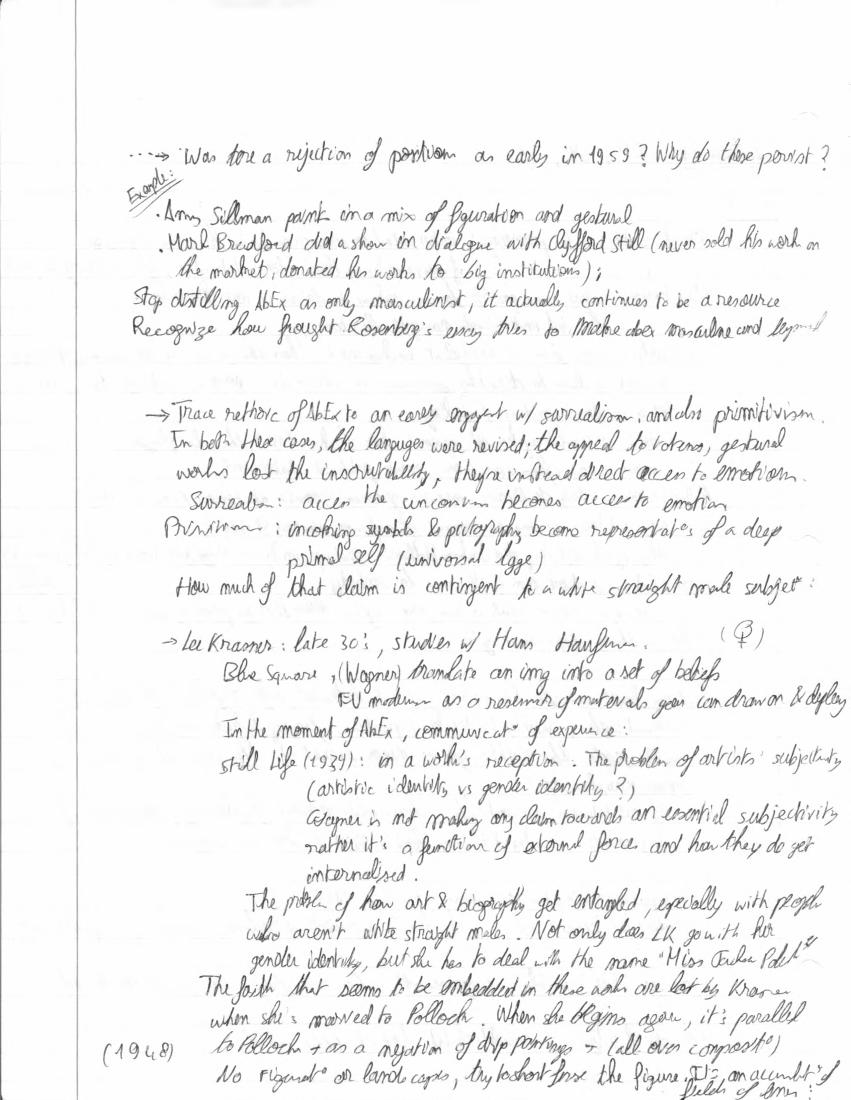 ...→ Was there a rejection of as early in 1959? Why do these persist?
Example:
· Amy Sillman paint in a mix of figuration and gestural
· Mark Bradford did a show in dialogue with Clyfford Still (never sold his work on
the market, donated his works to big institutions);
Stop distilling AbEx as only masculinist, it actually continues to be a resource
Recognize how frought Rosenberg's essay tries to make abex masculine and beyond
→ Trace rethoric of AbEx to an early engagent w/ surrealism, and also primitivism.
In both these cases, the languages were revised; the appeal to totems, gestural
works lost the inscrutability, they're instead direct access to emotions.
Surrealism: access the unconscious becomes access to emotion
Primitivism: symbols & pictography become representat°s of a deep
primal self (universal lgge)
How much of that claim is contingent to a white straight male subject:
→ Lee Krasner: late 30's, studies w/ Hans Hoffman.
Blue Square, (Wagner) translate an img into a set of beliefs
EU modernism as a reservoir of materials you can draw on & deploy
In the moment of AbEx, communicat° of experience:
Still Life (1939): in a work's reception. The problem of artists' subjectivity
(artistic identity vs gender identity?)
Wagner is not making any claim towards an essential subjectivity
rather it's a function of external forces and how they do get
internalised.
The problem of how art & biography get entangled, especially with people
who aren't white straight males. Not only does LK go with her
gender identity, but she has to deal with the name "Miss Jackson Pollock"
The faith that seems to be embedded in these works are lost by Krasner
when she's married to Pollock. When she begins again, it's parallel
(1948) to Pollock → as a negation of drip paintings → (all over composit°)
No Figurat° or landscapes, try to short fuse the figure. It's an accumulat° of
fields of lines: